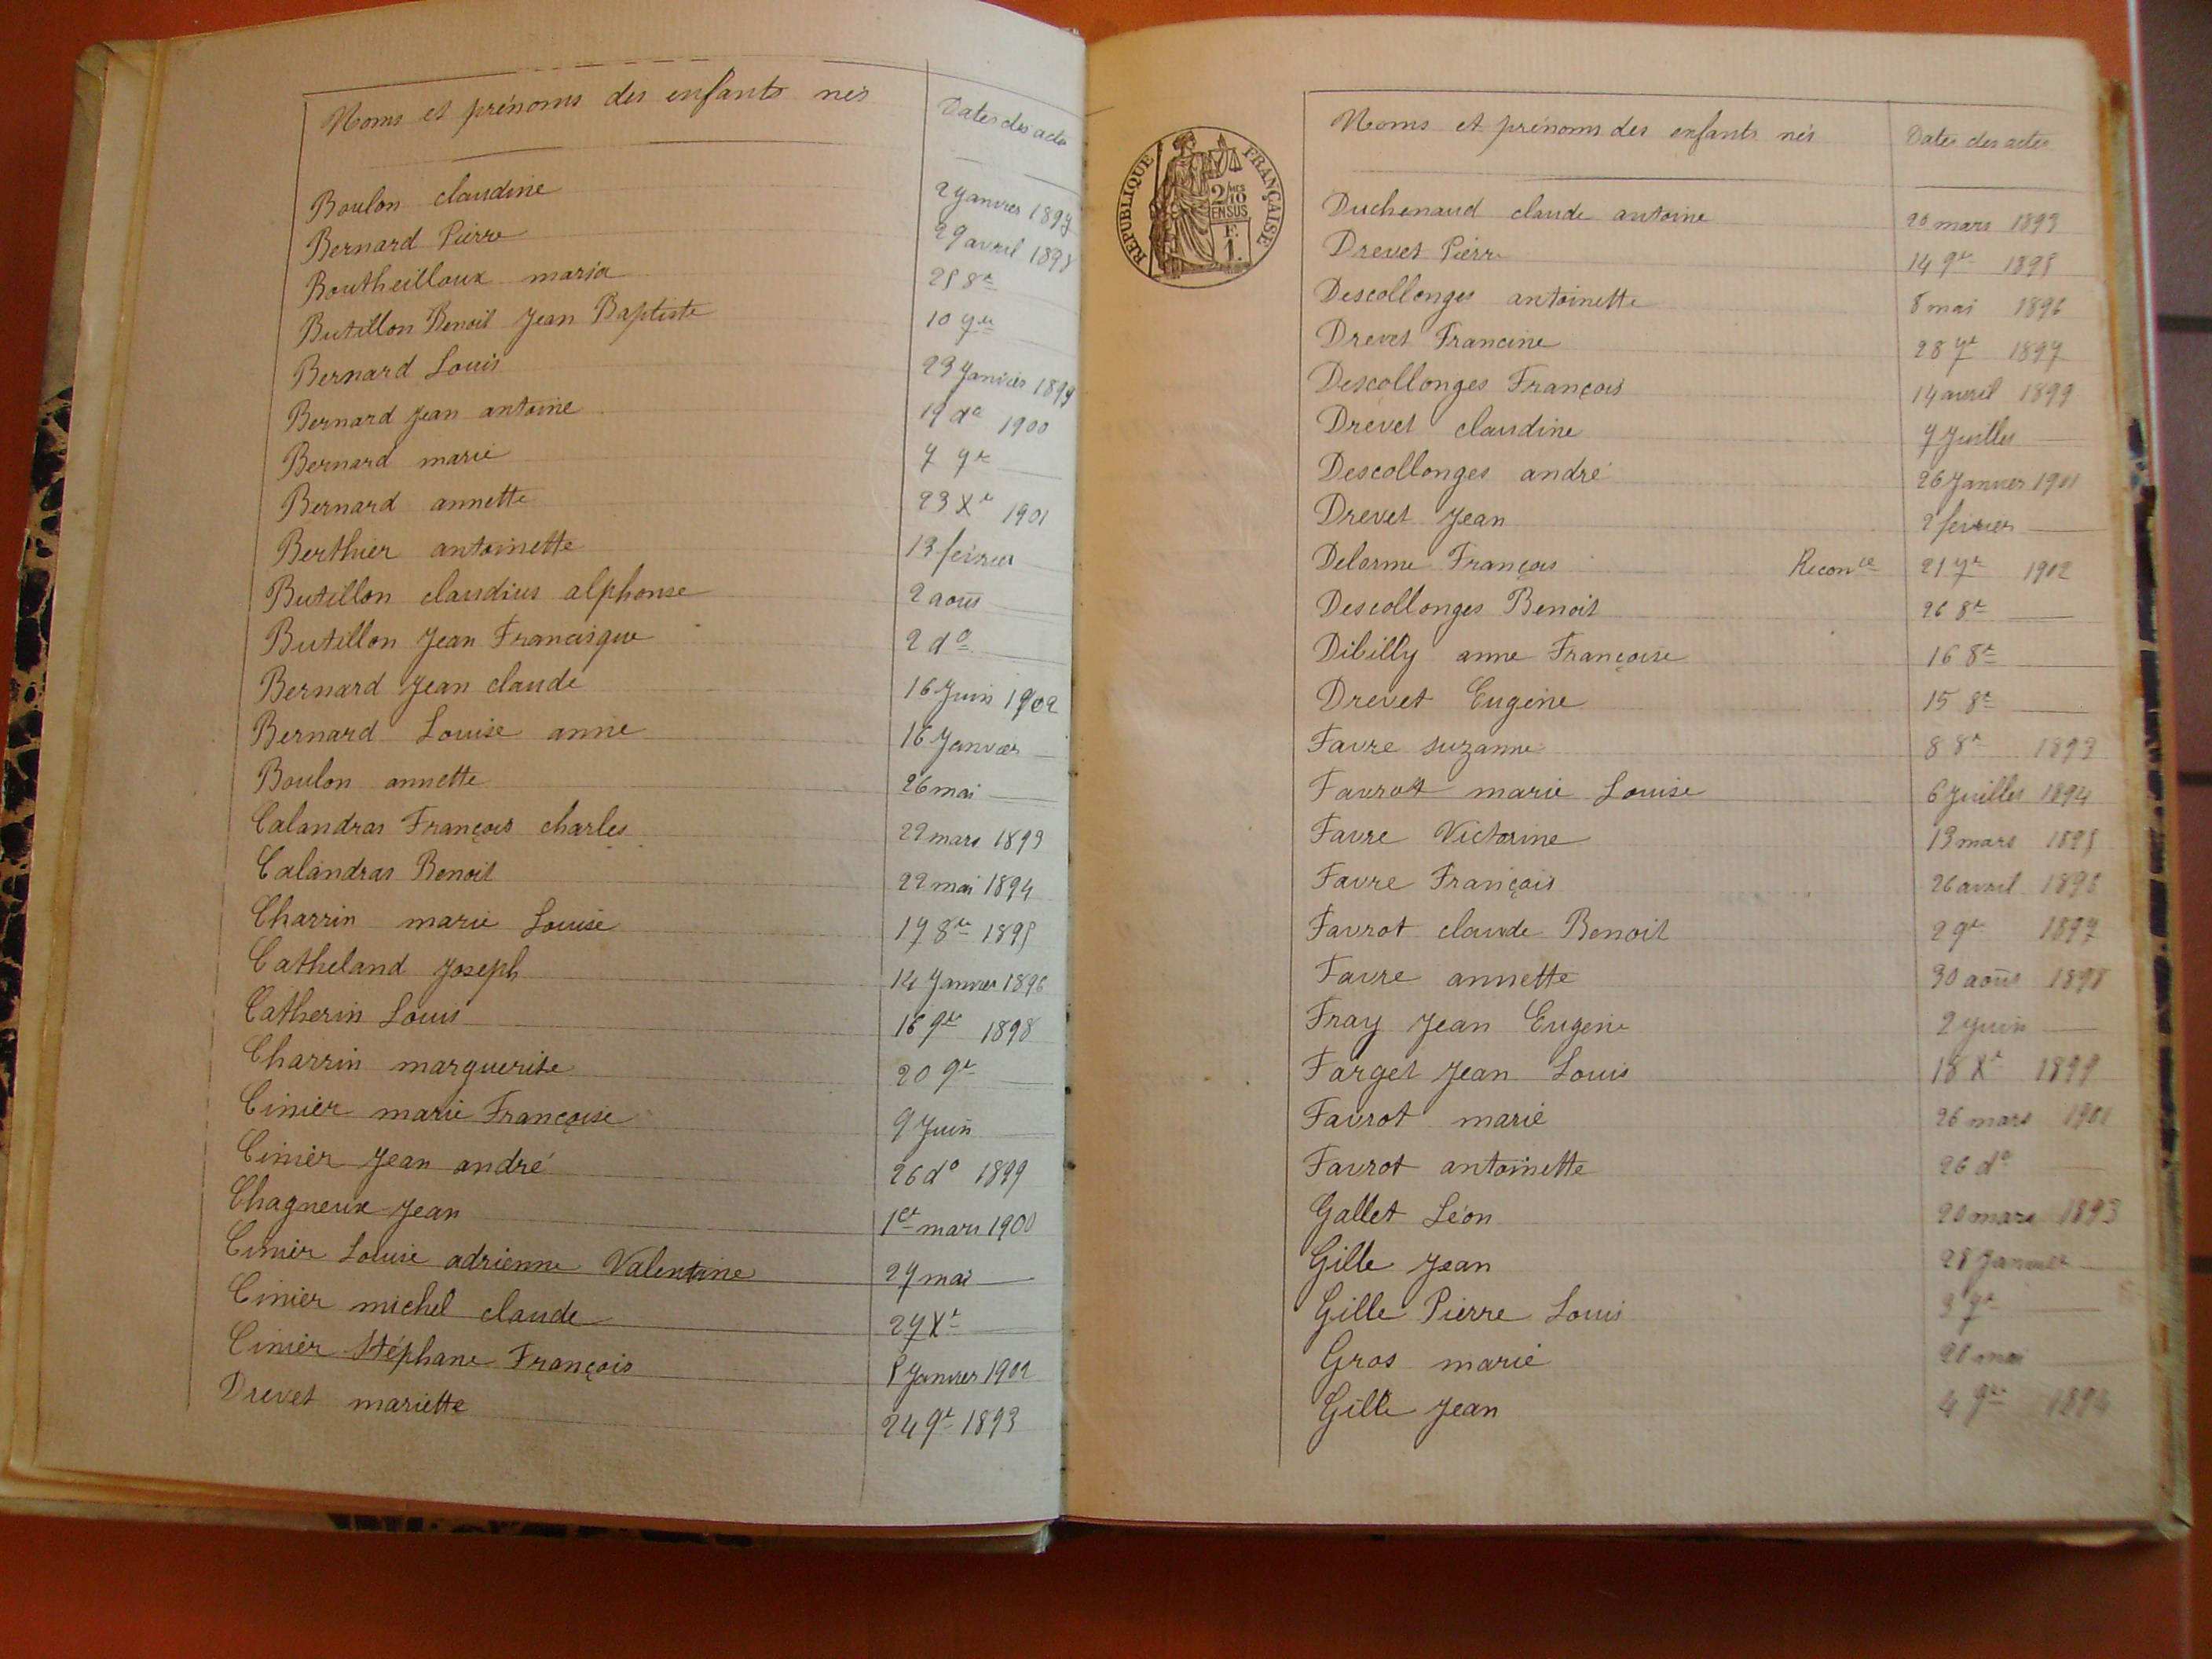 Noms et prénoms des enfants nés Dates des actes
Boulon claudine 2 Janvier 1897
Bernard Pierre 29 avril 1898
Boutheilloux maria 25 8re
Butillon Benoit Jean Baptiste 10 9re
Bernard Louis 23 Janvier 1899
Bernard Jean antoine 19 do 1900
Bernard marie 7 9re
Bernard annette 23 Xe 1901
Berthier antoinette 13 février
Butillon claudius alphonse 2 aout
Butillon Jean Francisque 2 do
Bernard Jean claude 16 Juin 1902
Bernard Louise anne 16 Janvier
Boulon annette 26 mai
Calandras François charles 22 mars 1893
Calandras Benoit 22 mai 1894
Charrin marie Louise 17 8re 1895
Catheland Joseph 14 Janvier 1896
Catherin Louis 16 9re 1898
Charrin marguerite 20 9re
Cinier marie Françoise 9 Juin
Cinier Jean andré 26 do 1899
Chagneux Jean 1er mars 1900
Cinier Louise adrienne Valentine 27 mai
Cinier michel claude 27 Xe
Cinier Stéphane François Janvier 1902
Drevet mariette 24 9e 1893
REPUBLIQUE FRANÇAISE
2/10 MES
EN SUS
F.
1.
Noms et prénoms des enfants nés Dates des actes
Duchenaud claude antoine 20 mars 1893
Drevet Pierre 14 9re 1895
Descollonges antoinette 8 mai 1896
Drevet Francine 28 7e 1897
Descollonges François 14 avril 1899
Drevet claudine 7 Juillet
Descollonges andré 26 Janvier 1901
Drevet Jean 2 février
Delorme François Reconce 21 7re 1902
Descollonges Benoit 26 8re
Dibilly anne Françoise 16 8re
Drevet Eugène 15 8re
Favre suzanne 8 8re 1893
Favrot marie Louise 6 Juillet 1894
Favre Victorine 13 mars 1895
Favre François 26 avril 1896
Favrot claude Benoit 2 9re 1897
Favre annette 30 aout 1898
Fray Jean Eugène 2 Juin
Farget Jean Louis 18 Xe 1899
Favrot marie 26 mars 1901
Favrot antoinette 26 do
Gallet Léon 20 mars 1893
Gille Jean 28 Janvier
Gille Pierre Louis 3 7e
Gros marie 20 mai
Gille Jean 4 9re 1894